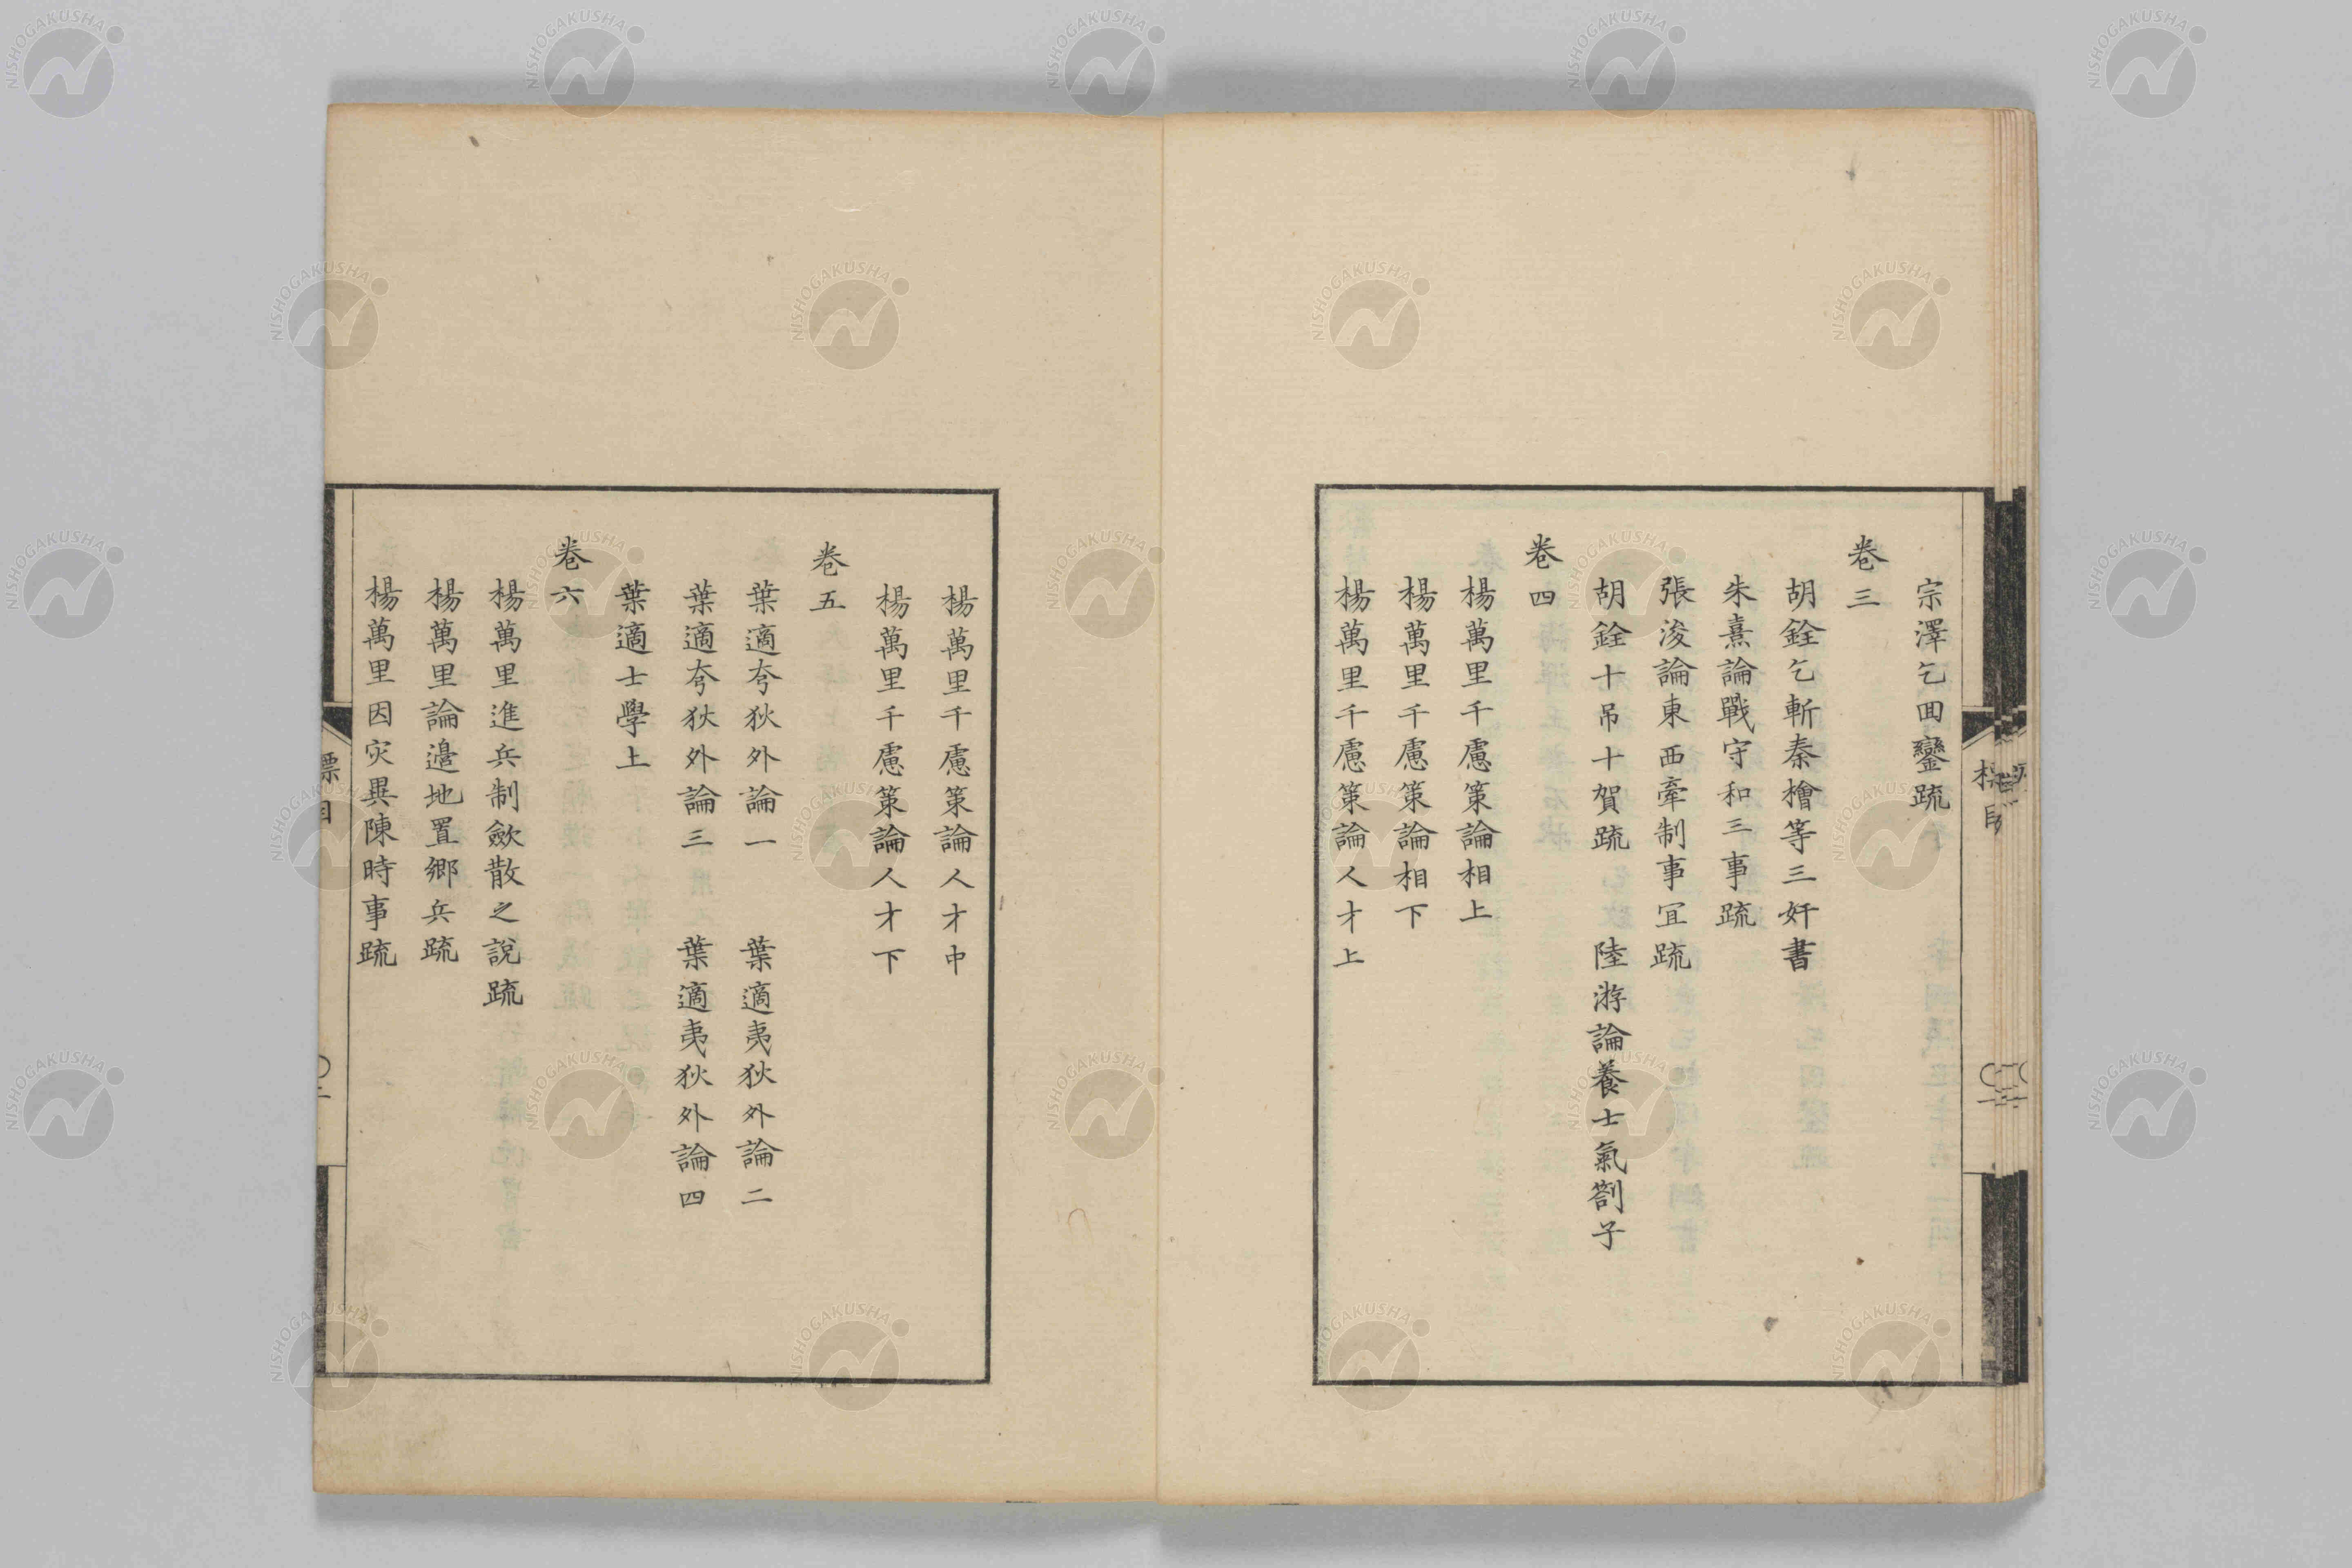 宗澤乞囬鑾疏
卷三
胡銓乞斬秦檜等三奸書
朱熹論戰守和三事疏
張浚論東西牽制事冝疏
胡銓十吊十賀疏　陸游論養士氣劄子
卷四
楊萬里千慮策論相上
楊萬里千慮策論相下
楊萬里千慮策論人才上
楊萬里千慮策論人才中
楊萬里千慮策論人才下
卷五
葉適夸狄外論一　葉適夷狄外論二
葉適夸狄外論三　葉適夷狄外論四
葉適士學土
卷六
楊萬里進兵制歛散之說疏
楊萬里論邉地置鄉兵疏
楊萬里因灾異陳時事疏
標目
NISHOGAKUSHA